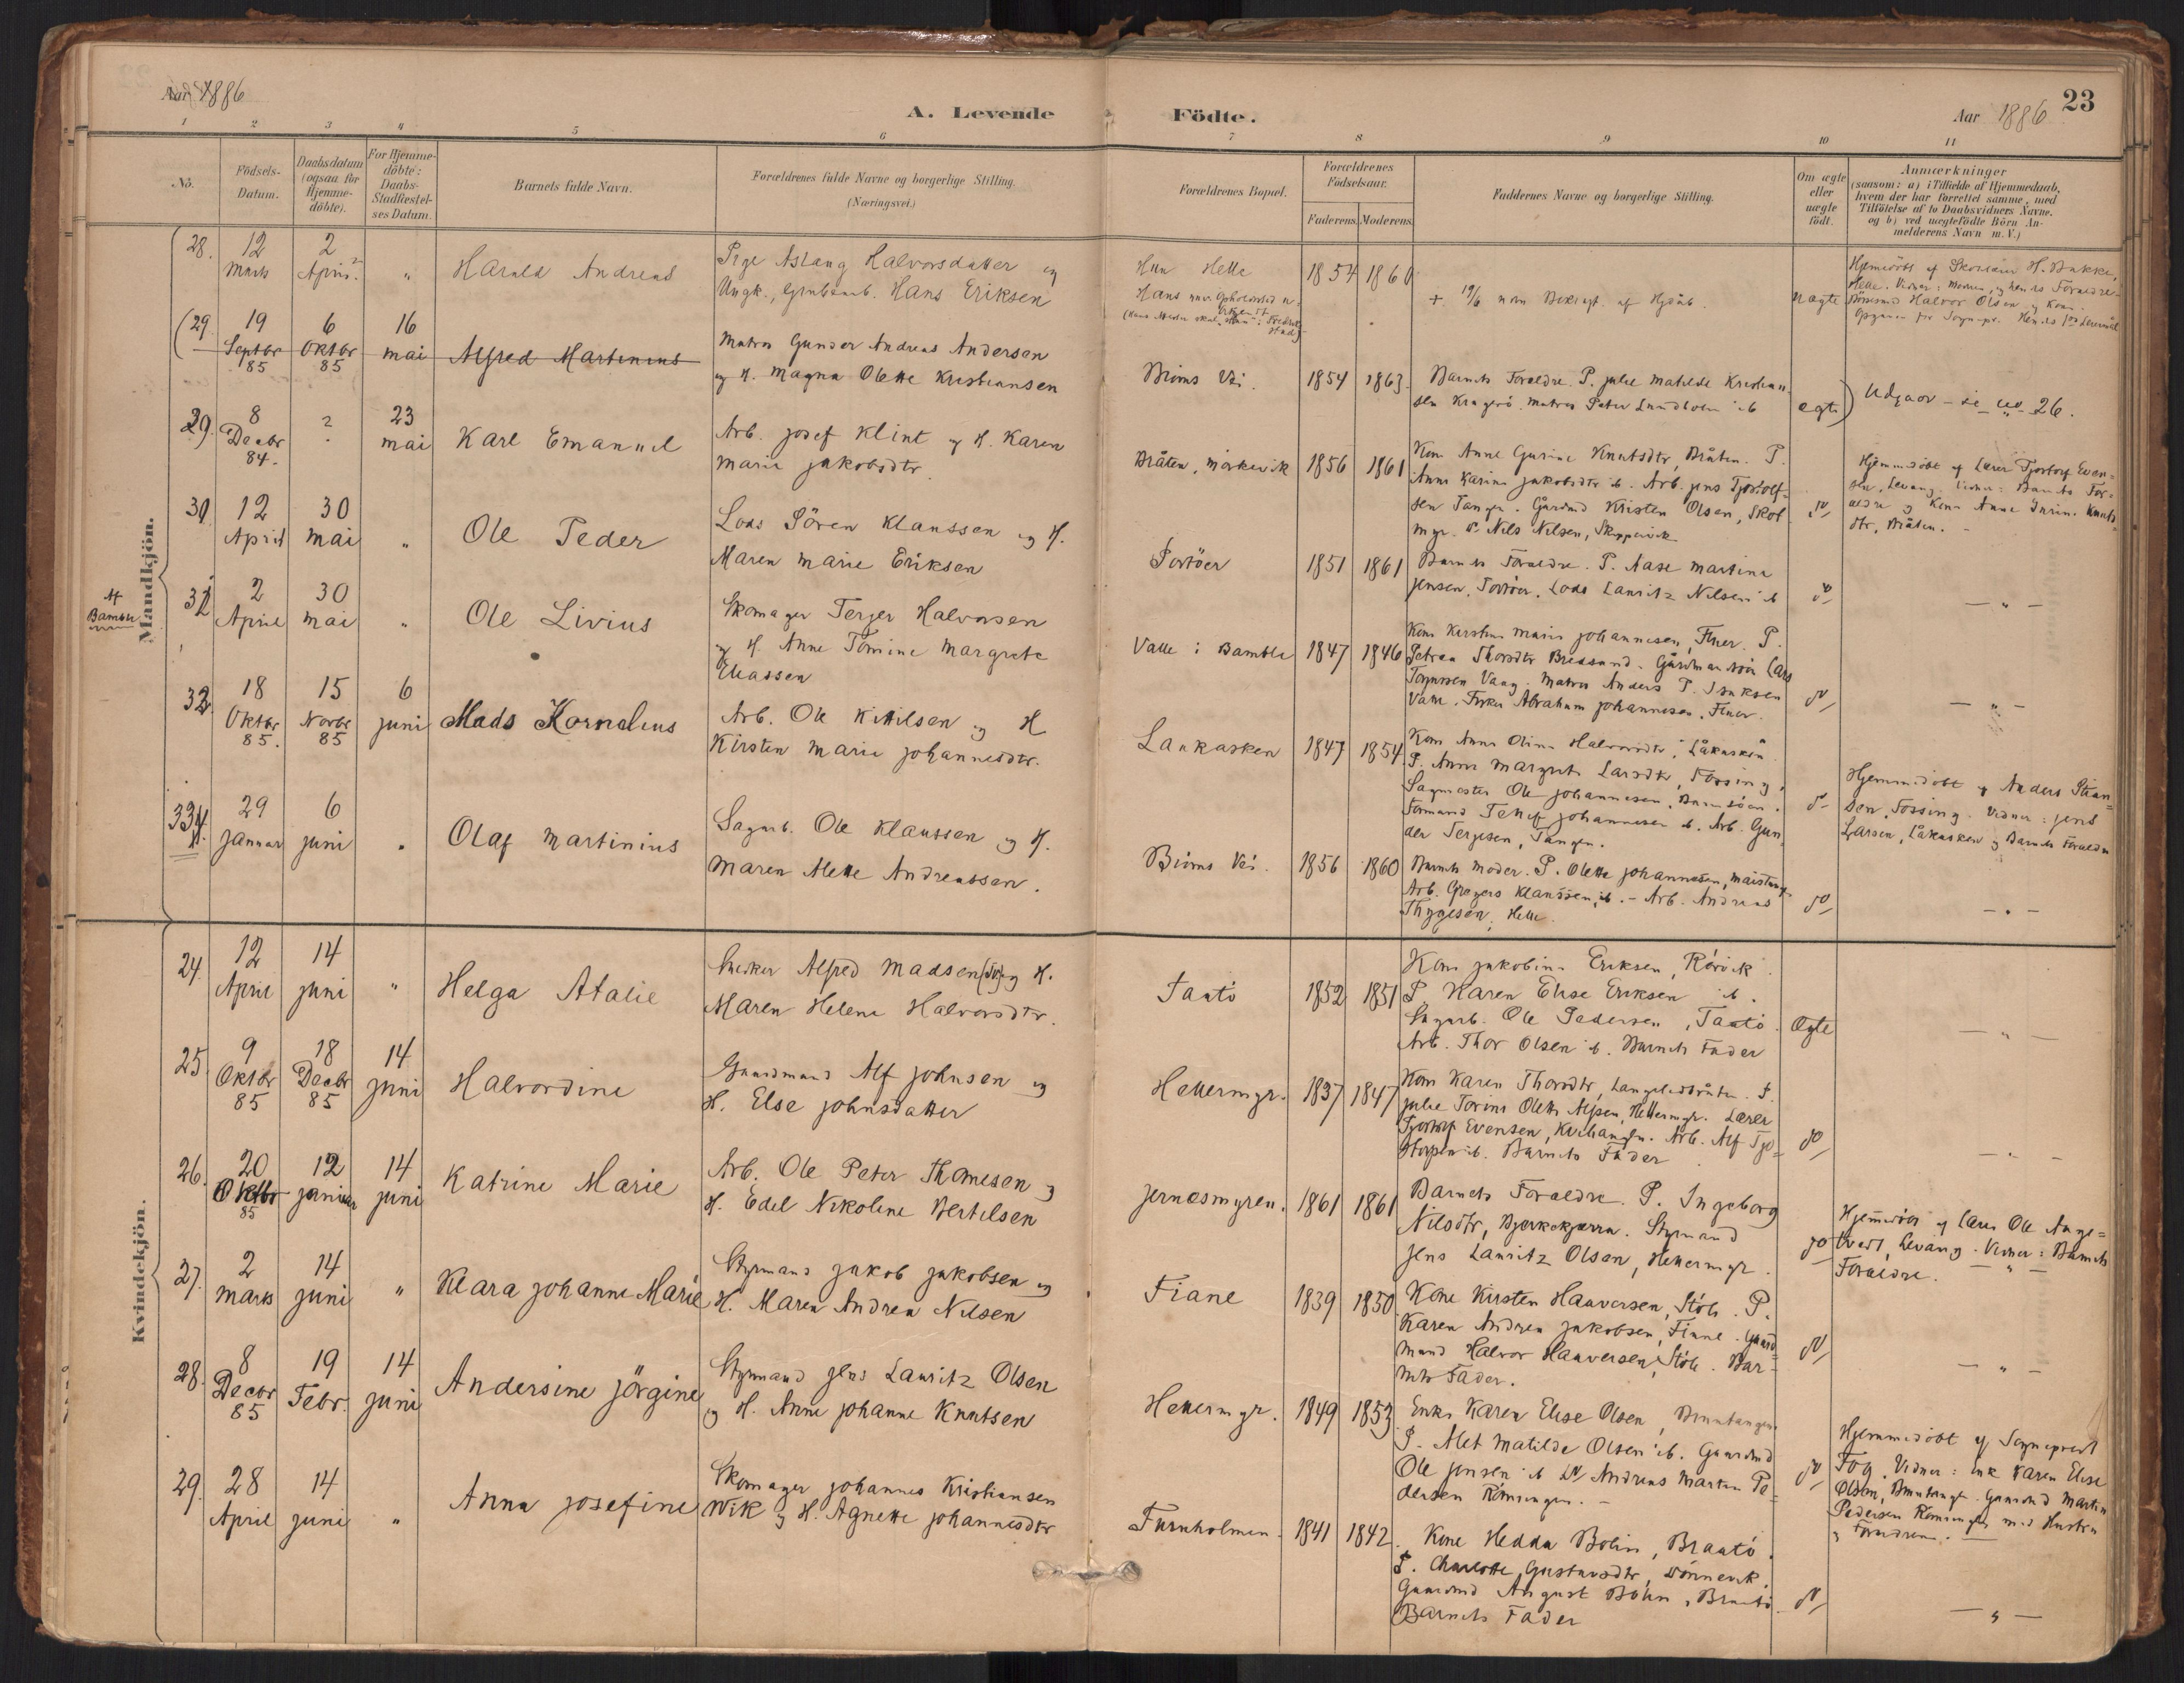 Aar 1886
A. Levende Födte.
Aar 1886
23
1 2 3 4 5 6 7 8 9 10 11
No.
Födsels-
Datum.
Daabsdatum
(ogsaa for
Hjemme-
döbte).
For Hjemme-
döbte:
Daabs-
Stadfæstel-
ses Datum.
Barnets fulde Navn.
Forældrenes fulde Navne og borgerlige Stilling.
(Næringsvei.)
Forældrenes Bopæl.
Forældrenes
Födselsaar.
Faderens. Moderens.
Faddernes Navne og borgerlige Stilling.
Om ægte
eller
uægte
födt.
Anmærkninger
(saasom: a) i Tilfælde af Hjemmedaab,
hvem der har forrettet samme, med
Tilföielse af to Daabsvidners Navne.
og b) ved uægtefödte Börn An-
melderens Navn m. V.)
Mandkjön.
28. 12 Marts
2 April
"
Harald Andreas
Pige Aslaug Halvorsdatter og
Ungk., Grubearb. Hans Eriksen
Hun Helle
1854 1860
uægte
(29. 19 Septbr 85
6 Oktbr 85
16 mai
Alfred Martinius
Matros Gunder Andreas Andersen
og H. Magna Olette Kristiansen
Bröms Vei.
1854 1863.
Barnets Forældre. P. Julie Matilde Kristian
sen Kragerö. Matros Peter Lundholm ib
ægte)
Udgaar - se No 26.
29. 8 Decbr 84.
?
23 mai
Karl Emanuel
Arb. Josef Klint og H. Karen
Marie Jakobsdtr
Bråten, Mörkevik
1856 1861
Kone Anne Gurine Knutsdtr, Bråten. P.
Anne Karine Jakobsdtr ib. Arb. Jens Tjostolf-
sen Tangen. Gårdmd Kristen Olsen, Skol
mgr. Nils Nilsen,
do
Hjemmedöbt af Lærer Tjostolf Even-
sen, Levang. Vidner: Barnets For-
ældre og Kone Anne Gurine Knuts-
dtr, Bråten. -
30 12 April
30 mai
"
Ole Peder
Lods Sören Klaussen og H.
Maren Marie Eriksen
Portöer
1851 1861
Barnets Forældre. P. Aase Martine
Jensen, Portöer. Lods Lauritz Nilsen ib
do
- " -
Af
Bamble
31 2 April
30 mai
"
Ole Livius
Skomager Terjer Halvorsen
og H. Anne Tomine Margrete
Eliassen
Valle i Bamble
1847 1846
Kone Kirstine Marie Johannesen, Fluer. P.
Petrea Thorsdtr Bressund. Gårdmandssön Lars
Torjussen Vaag. Matros Anders P. Isaksen
Valle. Fisker Abraham Johannesen, Fluer.
do
- " -
32 18 Oktbr 85.
15 Novbr 85
6 juni
Mads Kornelius
Arb. Ole Kittilsen og H
Kirsten Marie Johannesdtr.
Laukasken
1847 1854
Kone Anne Oline Halvorsdtr, Låkasken
P. Anne Margrete Larsdtr, Fossing,
Sagmester Ole Johannesen,
Formand Tellef Johannesen ib. Arb. Gun-
der Terjesen, Tangen.
do
Hjemmedöbt af Anders Stian-
sen, Fossing. Vidner: Jens
Larsen, Låkasken og Barnets Forældre
33 29 Januar
6 juni
"
Olaf Martinius
Sagarb. Ole Klaussen og H.
Maren Alette Andreassen.
Bröms Vei.
1856 1860
Barnets Moder. P. Olette Johannesen,
Arb. Gregers Klaussen, ib. - Arb. Andreas
Thygesen, Helle.
do
- " -
Kvindekjön.
24. 12 April
14 juni
"
Helga Atalie
Snekker Alfred Madsen og H.
Maren Helene Halvorsdtr.
Taatö
1852 1851
Kone Jakobine Eriksen, Rörvik.
P. Karen Elise Eriksen ib.
Sagarb. Ole Pedersen, Taatö.
Arb. Thor Olsen ib. Barnets Fader
Ægte
- " -
25. 9 Oktbr 85
18 Decbr 85
14 juni
Halvordine
Gaardmand Alf Johnsen og
H. Else Johnsdatter
Hellermyr.
1837 1847
Kone Karen Thorsdtr, Langelidbråten. P.
Julie Torine Olette Alfsen, Hellermyr. Lærer
Tjostolf Evensen, Arb. Alf Tjo-
stolfsen ib. Barnets Fader
do
- " -
26. 20 Oktbr 85
12 januar
14 juni
Katrine Marie
Arb. Ole Peter Thomesen og
H. Edel Nikoline Bertilsen
Jernesmyren.
1861 1861
Barnets Forældre. P. Ingeborg
Nilsdtr, Bjerkekjærra. Styrmand
Jens Lauritz Olsen, Hellermyr.
do
Hjemmedöbt af Lærer Ole Ange-
tvedt, Levang. Vidner: Barnets
Forældre.
27. 2 Marts
14 juni
"
Klara Johanne Marie
Styrmand Jakob Jakobsen og
H. Maren Andrea Nilsen
Fiane
1839 1850
Kone Kirsten Haavorsen, Stöle. P.
Karen Andrea Jakobsen, Fiane. Gaard-
mand Halvor Haaversen, Stöle. Bar-
nets Fader.
do
- " -
28. 8 Decbr 85
19 Febr.
14 juni
Andersine Jörgine
Styrmand Jens Lauritz Olsen
og H. Anne Johanne Knutsen
Hellermyr.
1849 1853
Enke Karen Elise Olsen,
P. Alet Matilde Olsen ib. Gaardmd
Ole Jensen ib Andreas Martin Pe-
dersen Rönningen. -
do
Hjemmedöbt af Sogneprest
Fog. Vidner: Enke Karen Elise
Olsen, Gaardmd Martin
Pedersen Rönningen med Hustru
og Forældrene.
29. 28 April
14 juni
"
Anna Josefine
Skomager Johannes Kristiansen
Wik og H. Agnette Johannesdtr
Furuholmen.
1841 1842.
Kone Hedda Bolin, Braatö.
P. Charlotte Gustavsdtr, Dönnevik.
Gaardmd August Bolin, Braatö.
Barnets Fader
do
- " -